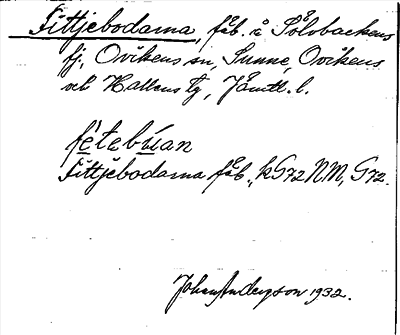 Fittjebodarna, fåb. å Sölvbackens
fj., Ovikens sn, Sunne, Ovikens
och Hallens tg, Jämtl. l.
fètebúan
Fittjebodarna fåb., kG72NM, G72.
Johan Anderson 1932.